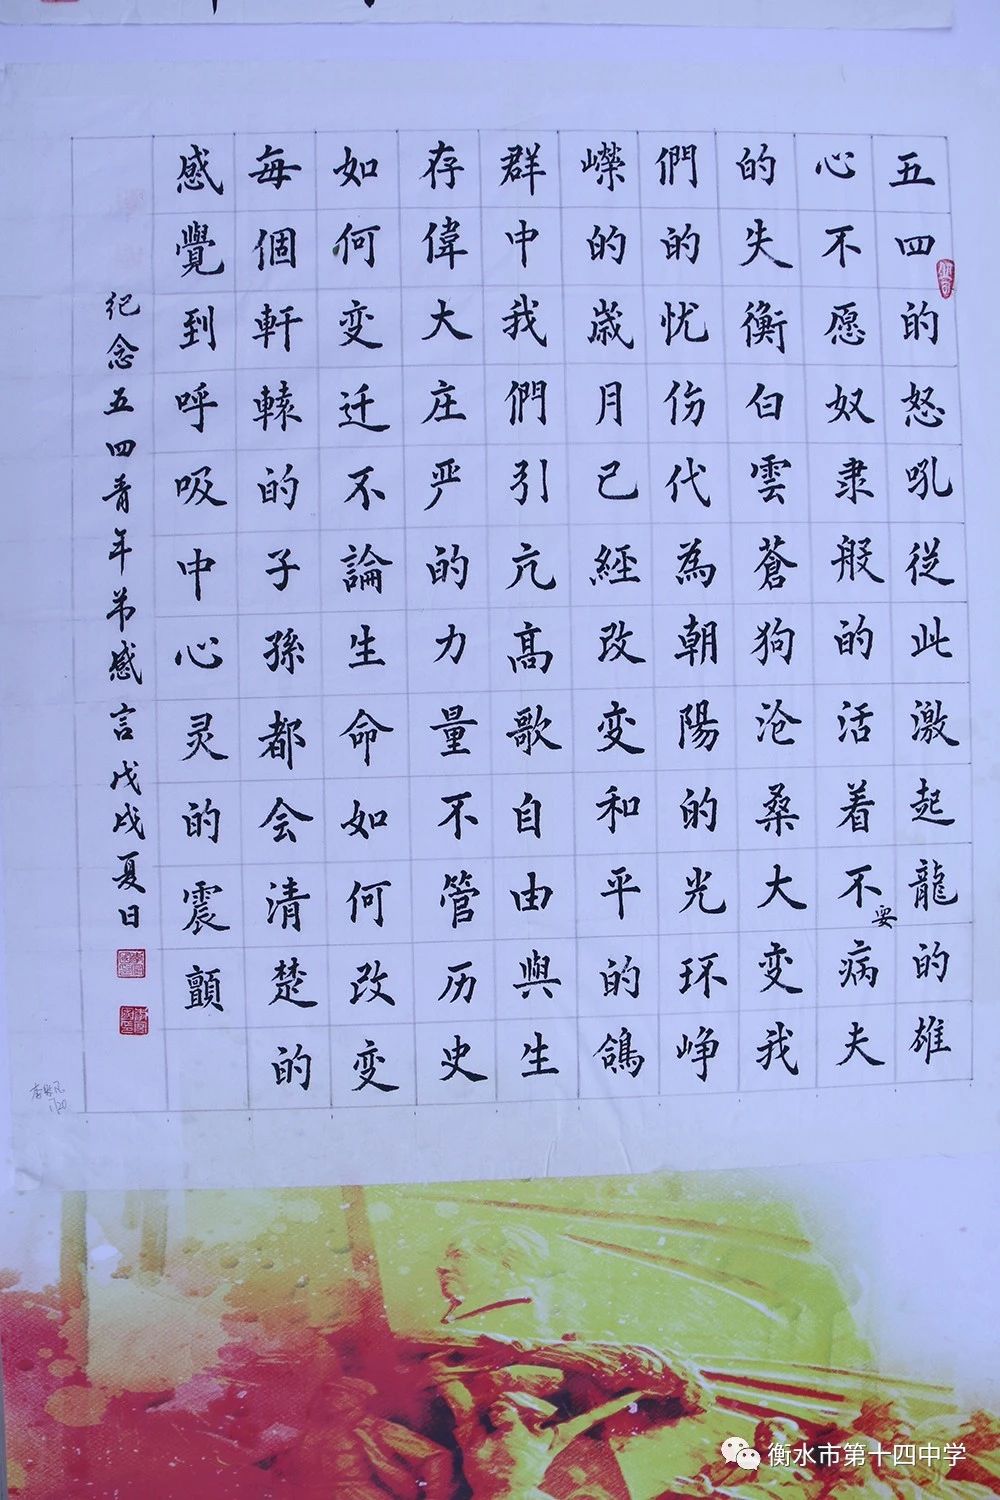 五四的怒吼从此激起龍的雄
心不愿奴隶般的活着不要病夫
的失衡白雲蒼狗沧桑大变我
們的忧伤代為朝陽的光环峥
嶸的歲月已經改变和平的鴿
群中我們引亢高歌自由與生
存偉大庄严的力量不管历史
如何变迁不論生命如何改变
每個軒轅的子孫都会清楚的
感覺到呼吸中心灵的震顫
纪念五四青年节感言戊戌夏日
衡水市第十四中学